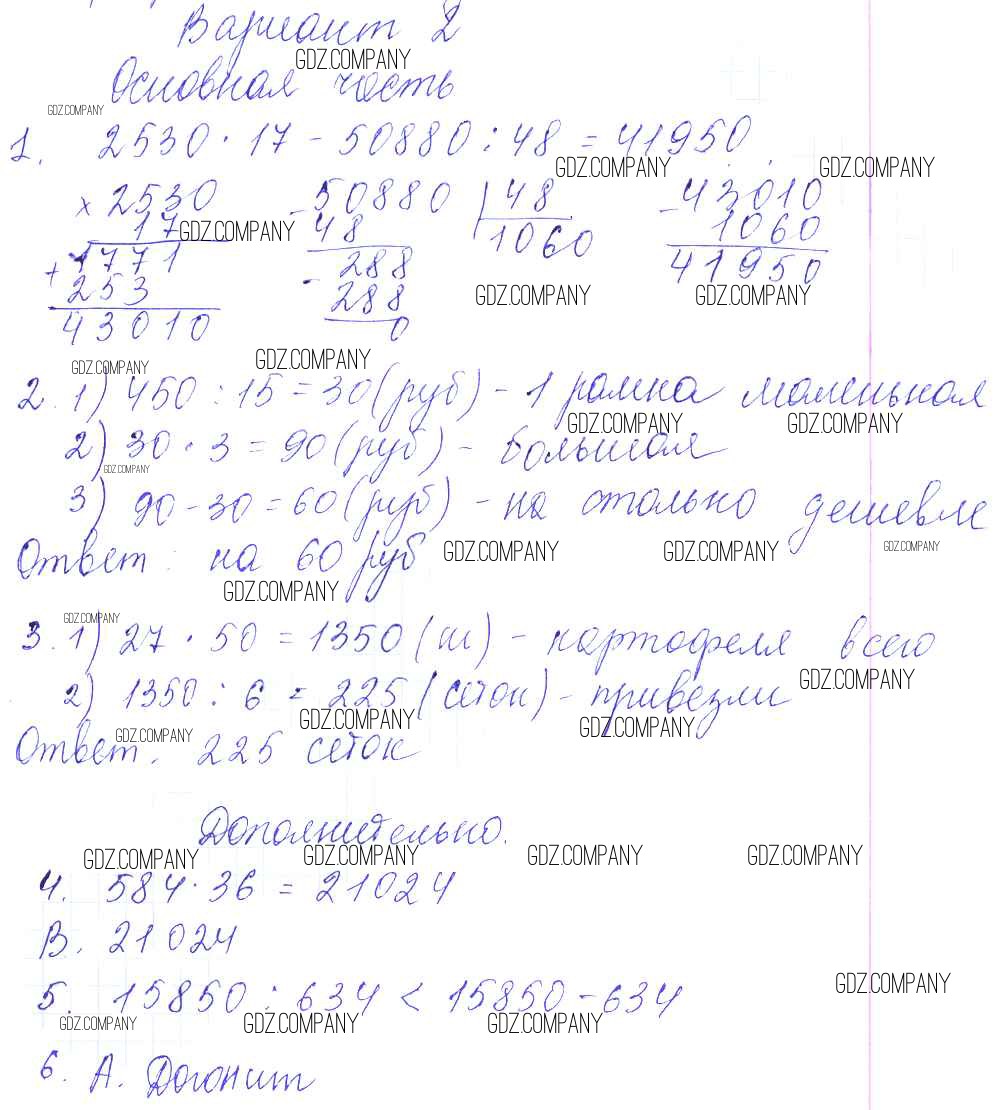 Вариант 2
GDZ.COMPANY
Основная часть
GDZ.COMPANY
1. 2530 · 17 - 50880 : 48 = 41950
GDZ.COMPANY GDZ.COMPANY
× 2530 - 50880 | 48 - 43010
17 48 1060 1060
GDZ.COMPANY
+ 1771 288 41950
253 - 288
43010 0
GDZ.COMPANY GDZ.COMPANY
GDZ.COMPANY GDZ.COMPANY
2. 1) 450 : 15 = 30 (руб) - 1 рамка маленькая
GDZ.COMPANY GDZ.COMPANY
2) 30 · 3 = 90 (руб) - большая
GDZ.COMPANY
3) 90 - 30 = 60 (руб) - на столько дешевле
Ответ: на 60 руб
GDZ.COMPANY GDZ.COMPANY GDZ.COMPANY
GDZ.COMPANY
GDZ.COMPANY
3. 1) 27 · 50 = 1350 (ш) - картофеля всего
GDZ.COMPANY
2) 1350 : 6 = 225 (сеток) - привезли
GDZ.COMPANY GDZ.COMPANY
GDZ.COMPANY
Ответ. 225 сеток
Дополнительно.
GDZ.COMPANY GDZ.COMPANY GDZ.COMPANY GDZ.COMPANY
4. 584 · 36 = 21024
В. 21024
5. 15850 : 634 < 15850 - 634
GDZ.COMPANY
GDZ.COMPANY GDZ.COMPANY GDZ.COMPANY
6. А. Догонит